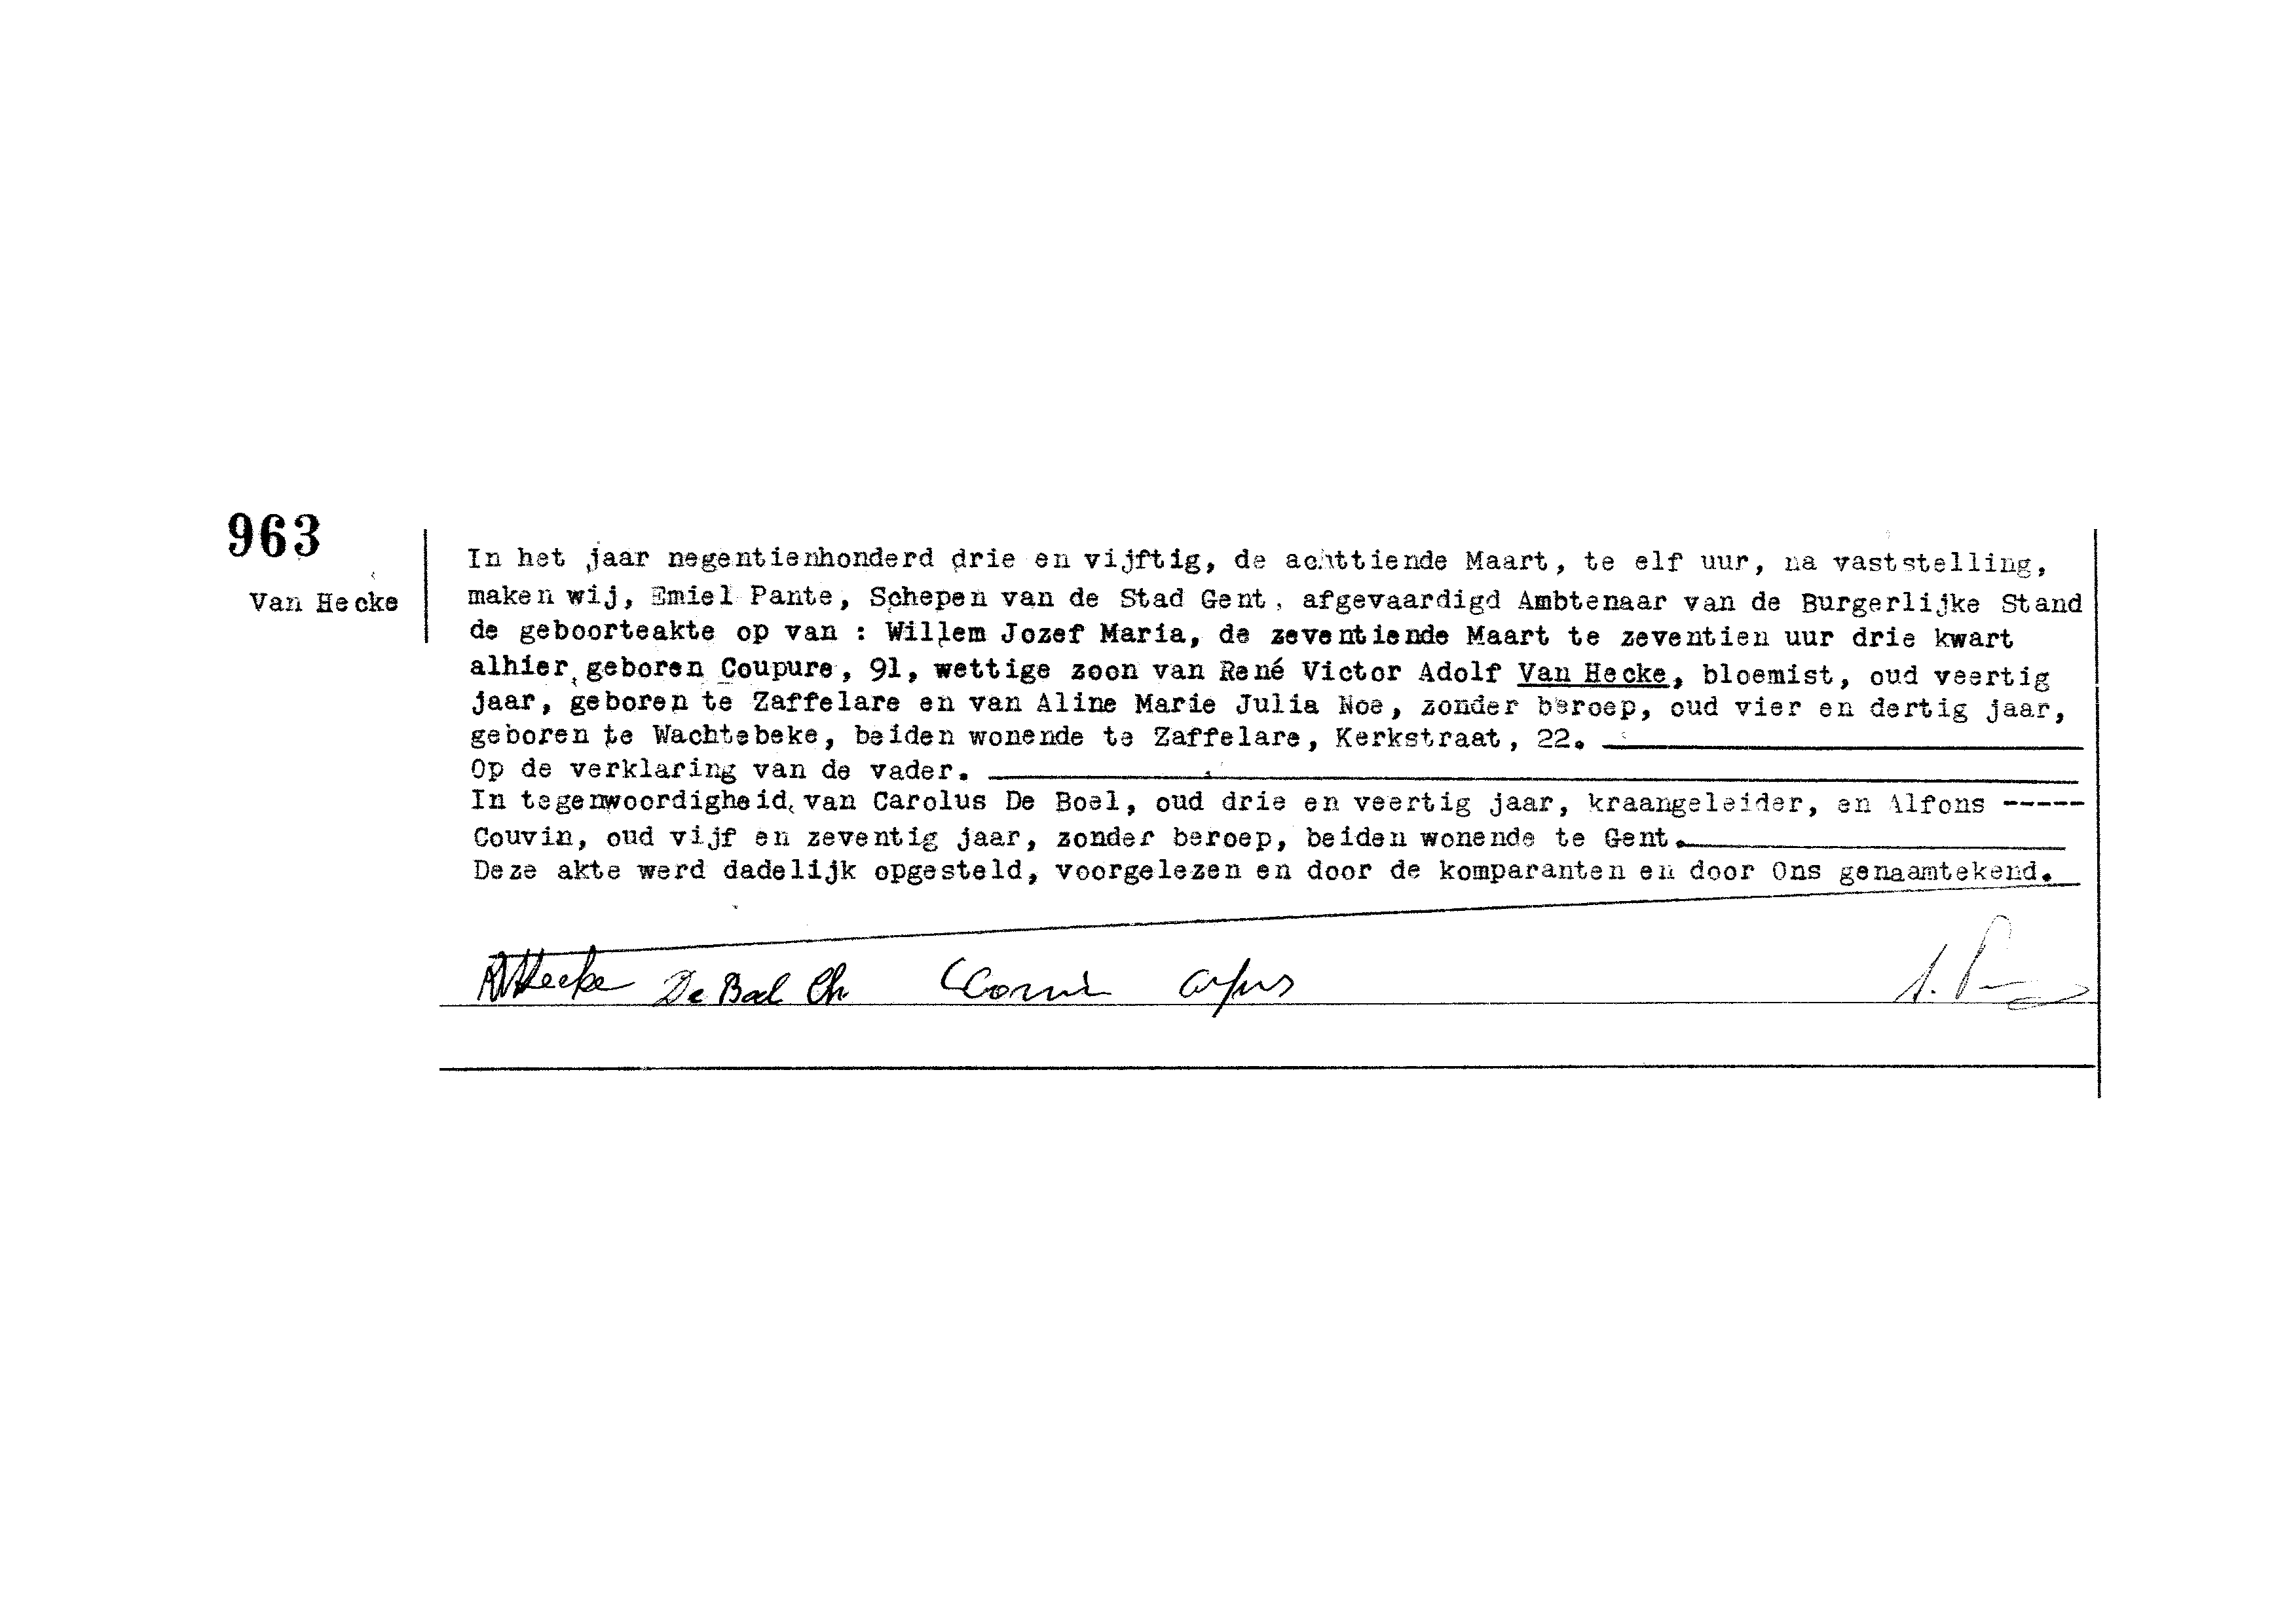 963
Van Hecke
In het jaar negentienhonderd drie en vijftig, de achttiende Maart, te elf uur, na vaststelling,
maken wij, Emiel Pante, Schepen van de Stad Gent, afgevaardigd Ambtenaar van de Burgerlijke Stand
de geboorteakte op van : Willem Jozef Maria, de zeventiende Maart te zeventien uur drie kwart
alhier geboren Coupure, 91, wettige zoon van René Victor Adolf Van Hecke, bloemist, oud veertig
jaar, geboren te Zaffelare en van Aline Marie Julia Noe, zonder beroep, oud vier en dertig jaar,
geboren te Wachtebeke, beiden wonende te Zaffelare, Kerkstraat, 22.
Op de verklaring van de vader.
In tegenwoordigheid van Carolus De Boel, oud drie en veertig jaar, kraangeleider, en Alfons -----
Couvin, oud vijf en zeventig jaar, zonder beroep, beiden wonende te Gent.
Deze akte werd dadelijk opgesteld, voorgelezen en door de komparanten en door Ons genaamtekend.
De Boel Ch